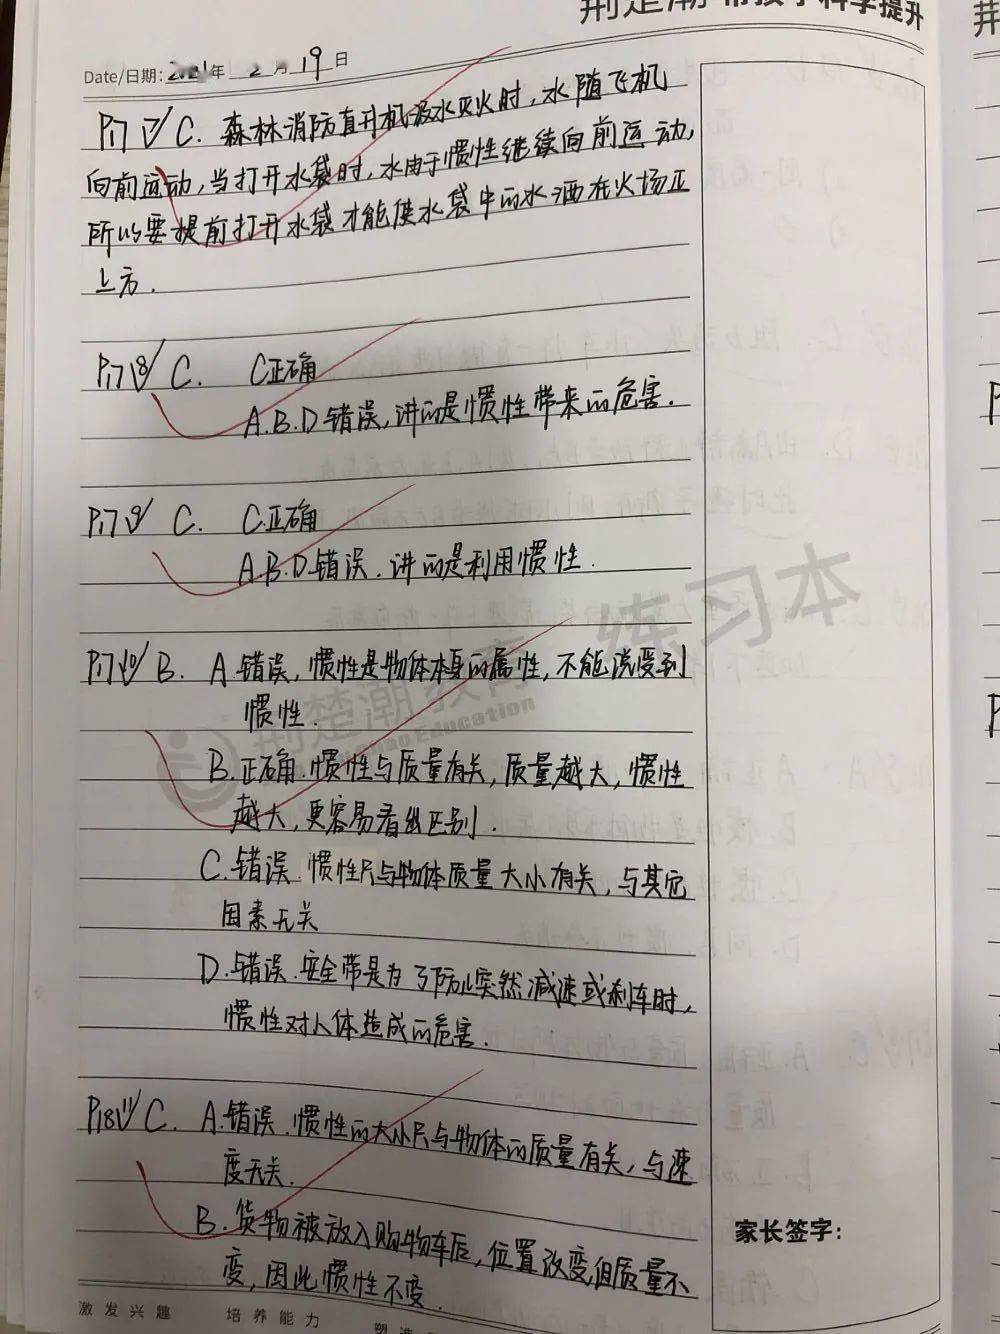 Date/日期: 2021年 2月 19日
P17 7/ C. 森林消防直升机汲水灭火时,水随飞机
向前运动,当打开水袋时,水由于惯性继续向前运动,
所以要提前打开水袋才能使水袋中的水洒在火场正
上方.
P17 8/ C. C正确
A.B.D错误,讲的是惯性带来的危害.
P17 9/ C. C正确
A.B.D错误.讲的是利用惯性.
练习本
荆楚潮教育
Education
P17 10/ B. A错误,惯性是物体本身的属性,不能说受到
惯性.
B.正确.惯性与质量有关,质量越大,惯性
越大,更容易看出区别.
C.错误.惯性只与物体质量大小有关,与其它
因素无关
D.错误.安全带是为了防止突然减速或刹车时,
惯性对人体造成的危害.
P18 11/ C. A.错误.惯性的大小只与物体的质量有关,与速
度无关.
B.货物被放入购物车后,位置改变但质量不
变,因此惯性不变.
家长签字:
激发兴趣 培养能力